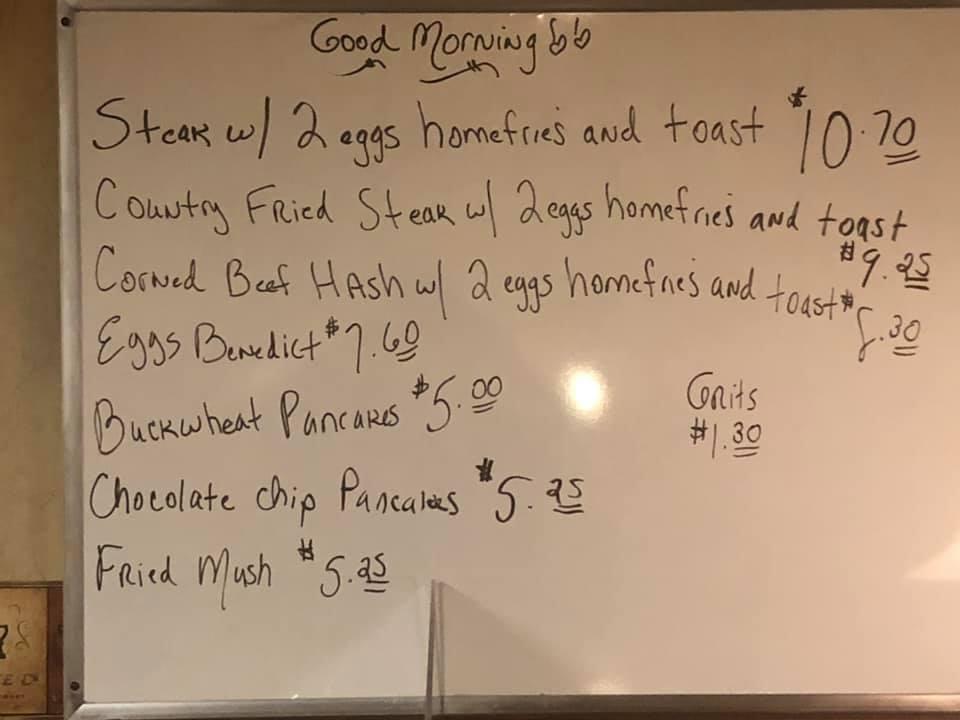 Good Morning
Steak w/ 2 eggs homefries and toast $10.70
Country Fried Steak w/ 2 eggs homefries and toast
$9.25
Corned Beef Hash w/ 2 eggs homefries and toast $8.30
Eggs Benedict $7.60
Buckwheat Pancakes $5.00
Grits
$1.30
Chocolate chip Pancakes $5.25
Fried Mush $5.25